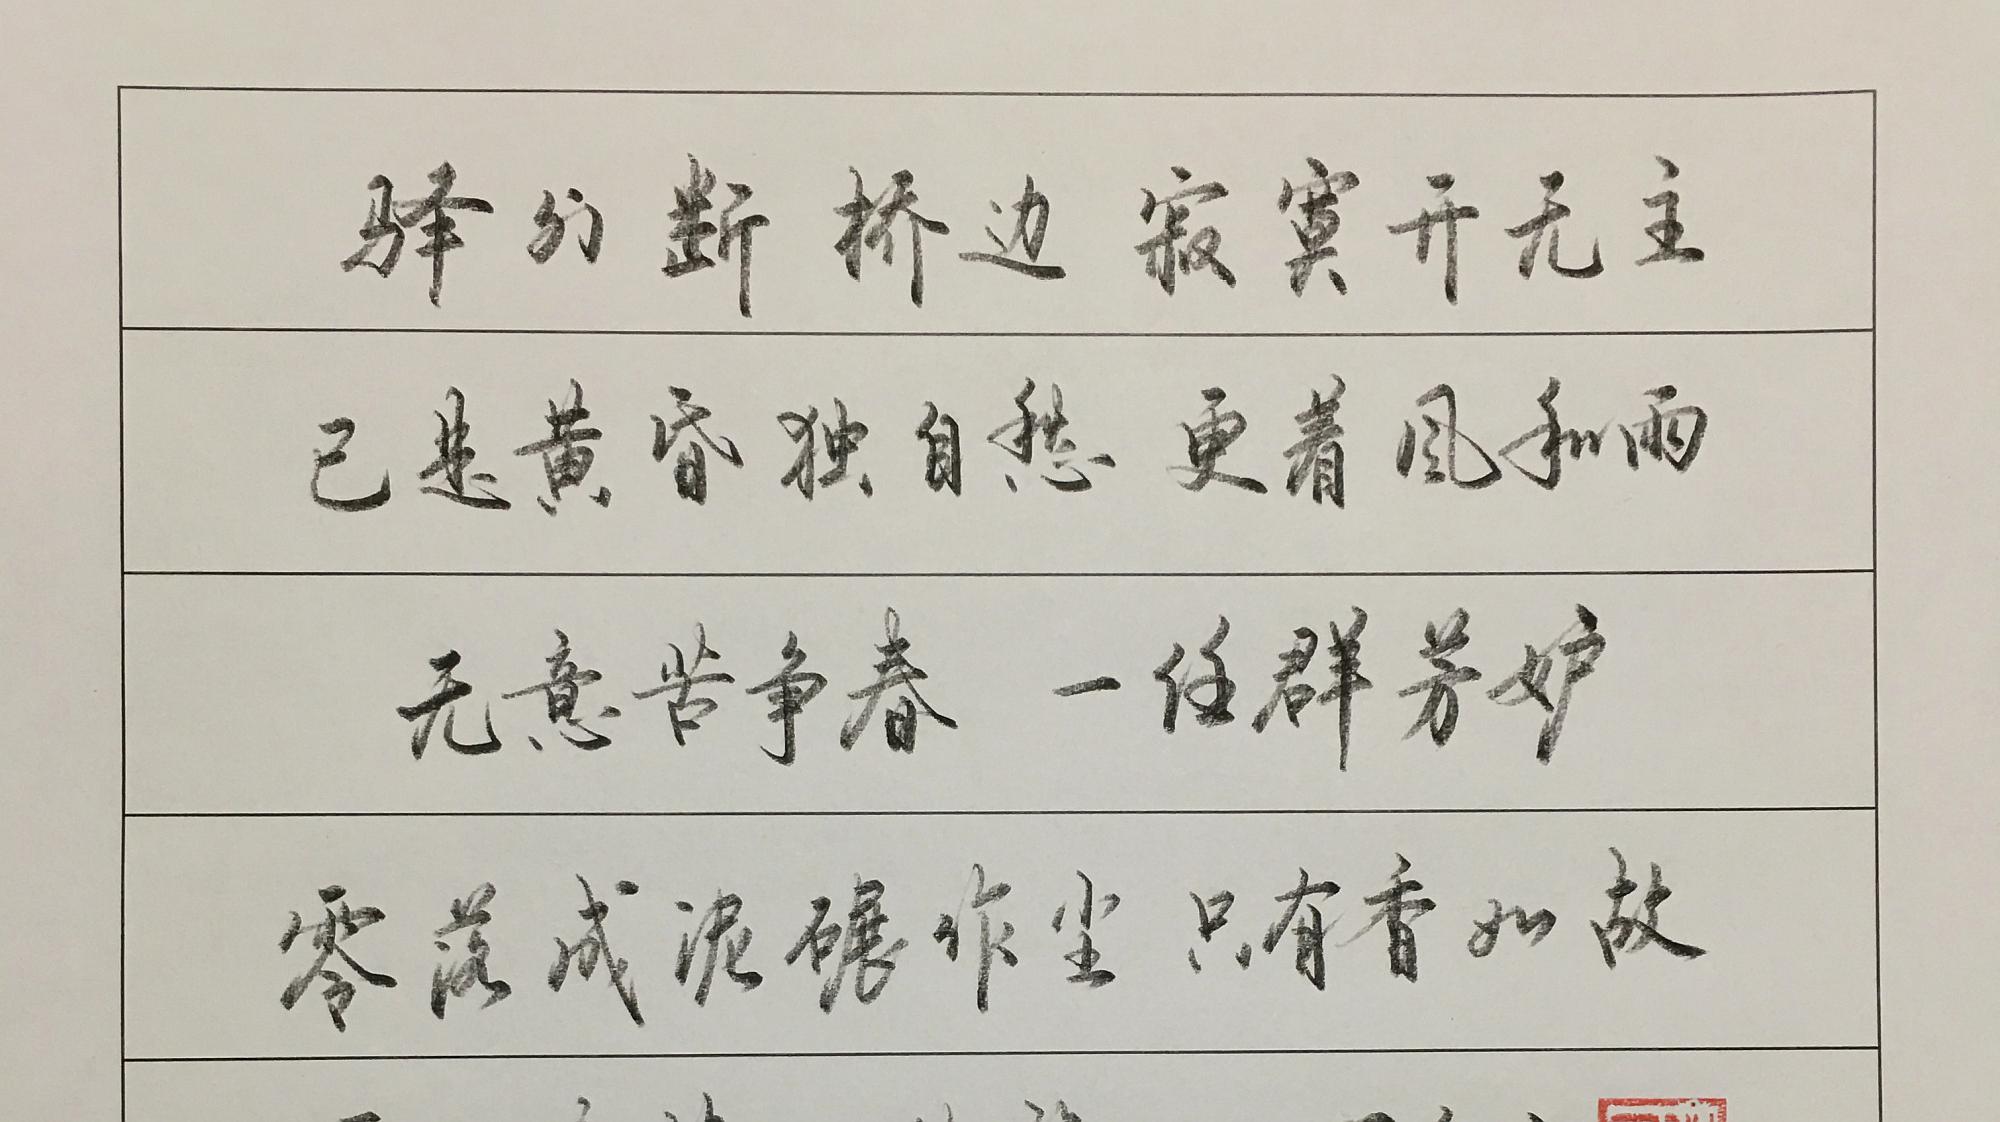 驿外断桥边 寂寞开无主
已是黄昏独自愁 更着风和雨
无意苦争春 一任群芳妒
零落成泥碾作尘 只有香如故